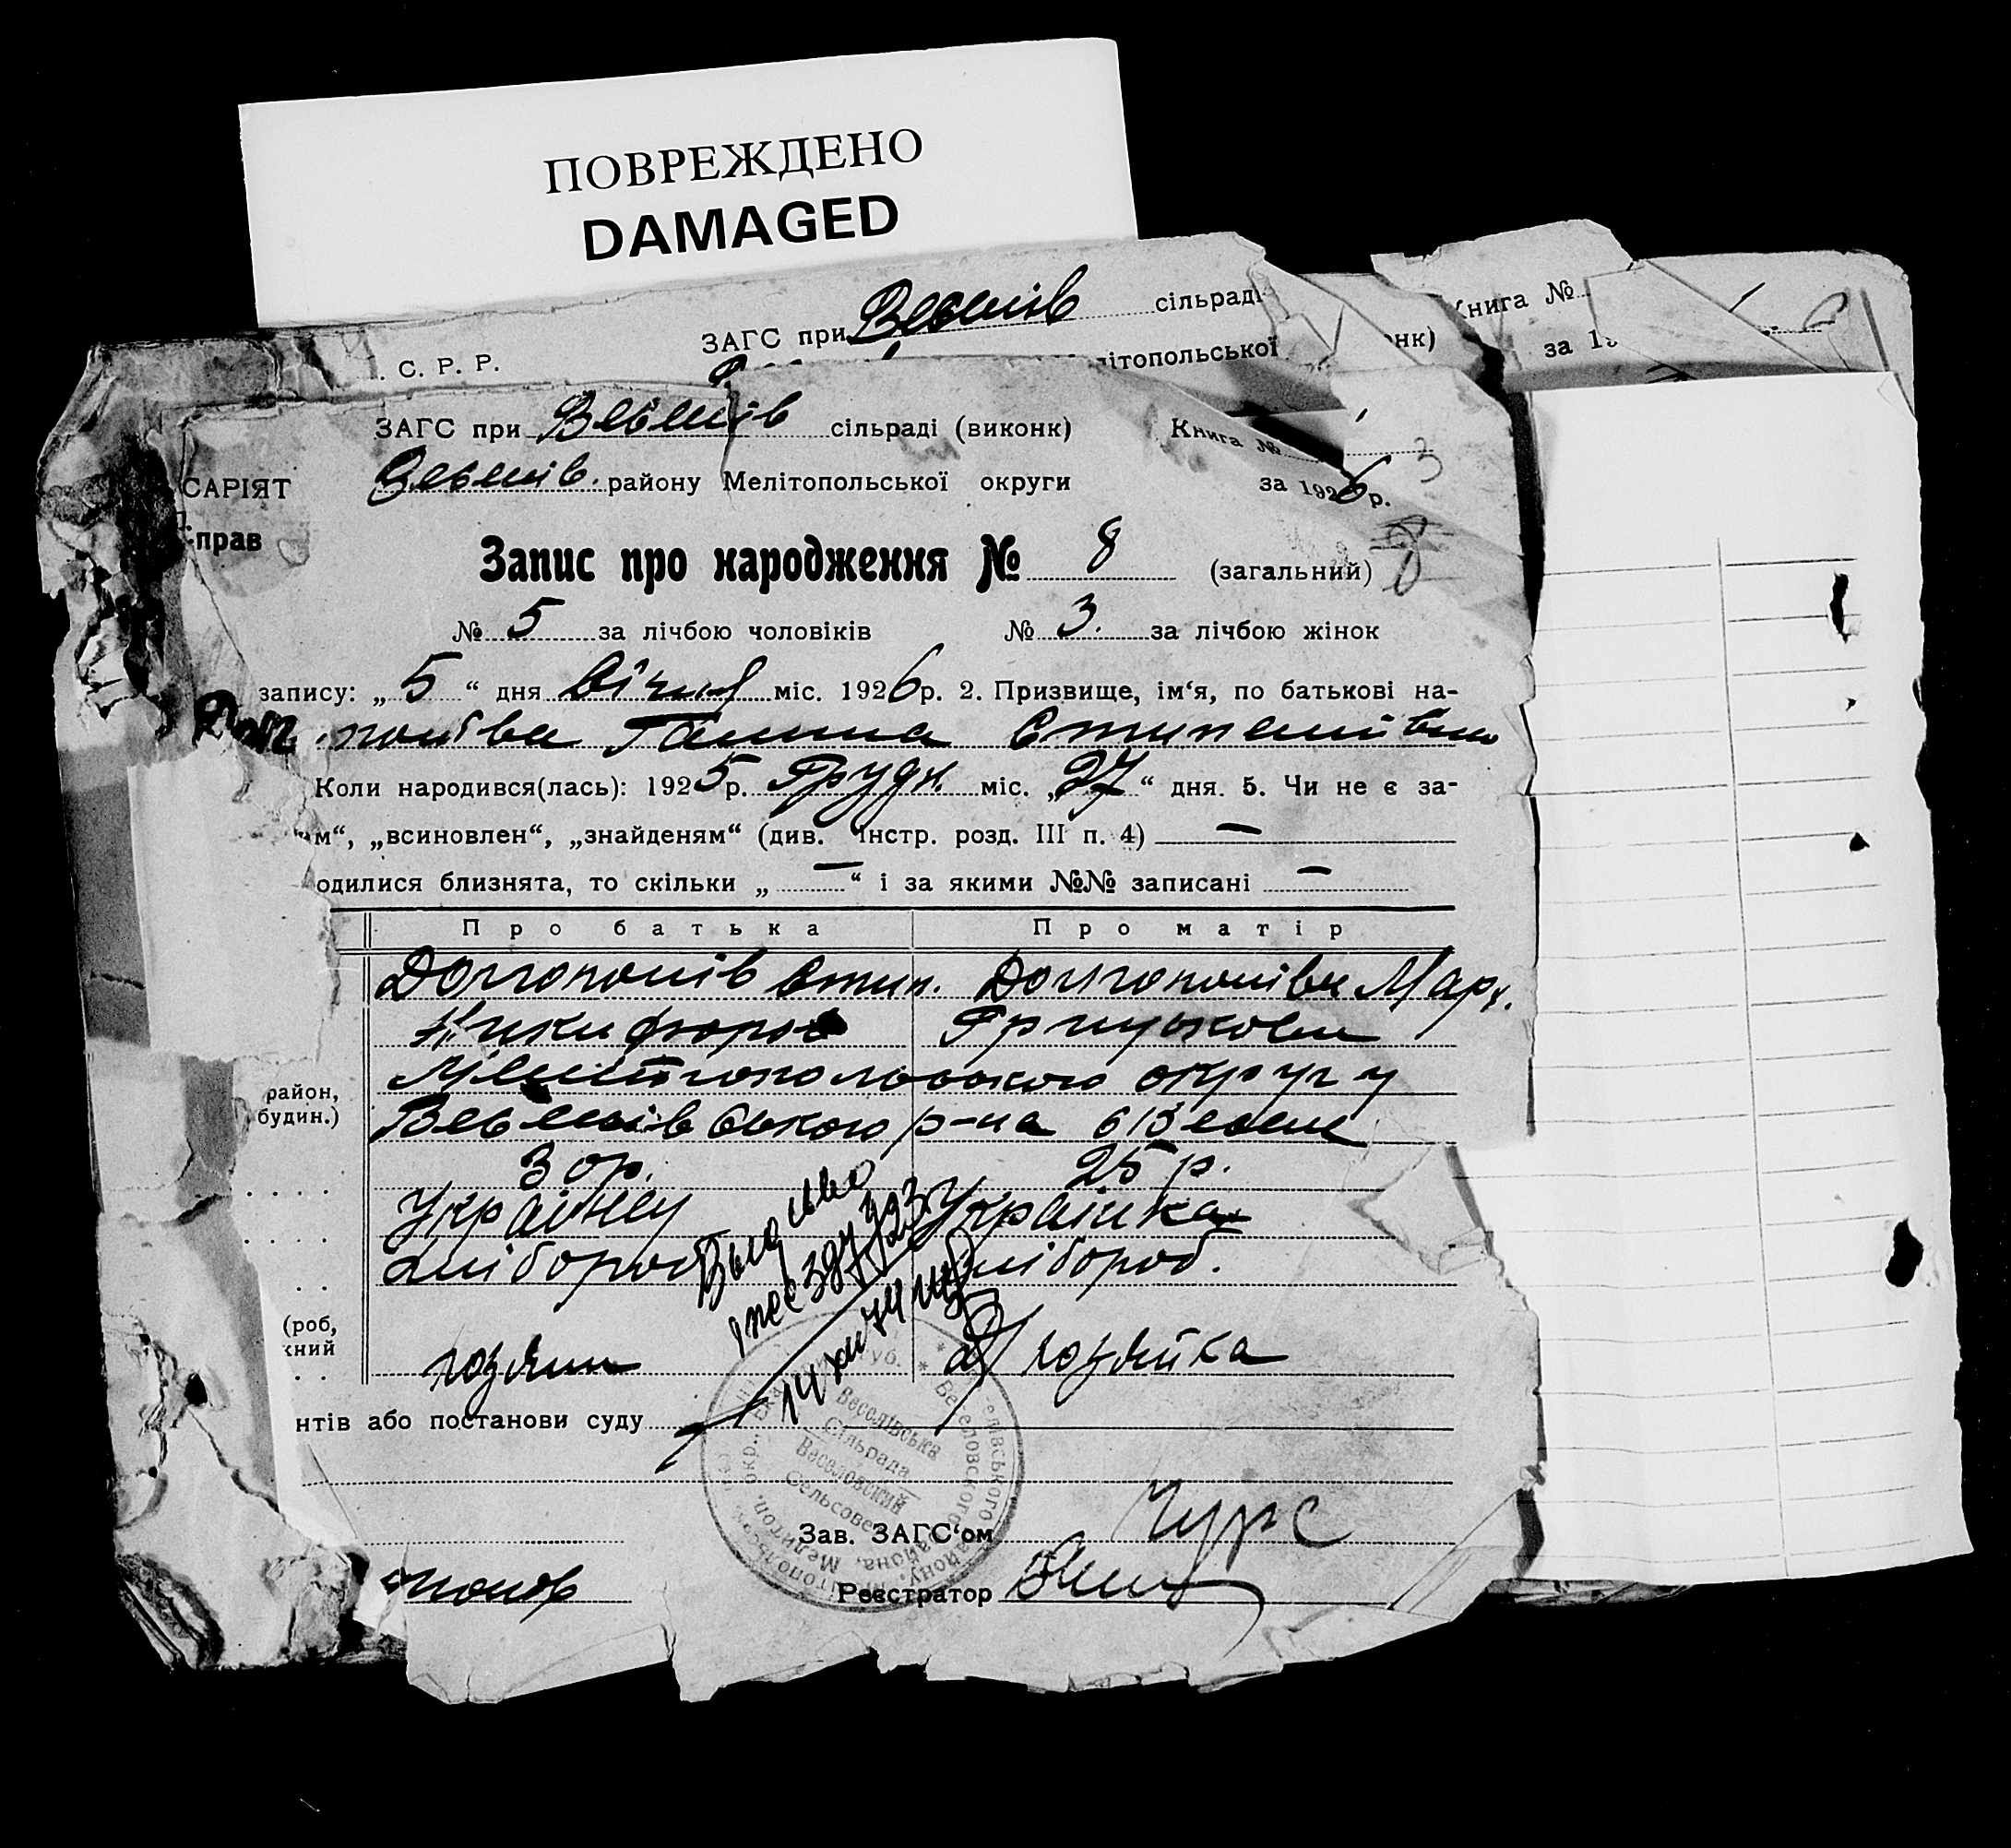 ПОВРЕЖДЕНО
DAMAGED
ЗАГС при Веселів сільраді
. С. Р. Р.
ітопольської
нк)
Книга №
за 19
ЗАГС при Веселів сільраді (виконк)
Книга № 3
САРІЯТ
Веселів. району Мелітопольської округи
за 1926 р.
прав
Запис про народження № 8 (загальний) 8
№ 5 за лічбою чоловіків № 3. за лічбою жінок
запису: „ 5 “ дня Січня міс. 1926 р. 2. Призвище, ім‘я, по батькові на-
Долгополіва Ганна
Коли народився(лась): 1925 р. Грудн. міс. „ 27 “ дня. 5. Чи не є за-
м“, „всиновлен“, „знайденям“ (див. інстр. розд. III п. 4) —
одилися близнята, то скільки „ — “ і за якими №№ записані —
Про батька Про матір
Долгополів Степ. Долгополіва Мар.
Никифоров
Мелітопольського округу
район,
будин.)
Веселівського р-на с Веселе
30 р. 25 р.
Українец Українка
хлібороб хлібороб.
(роб,
кний
хозяин хозяйка
нтів або постанови суду
Веселівська
Сільрада
Веселовский
Сельсовет
Зав. ЗАГС‘ом
Реєстратор